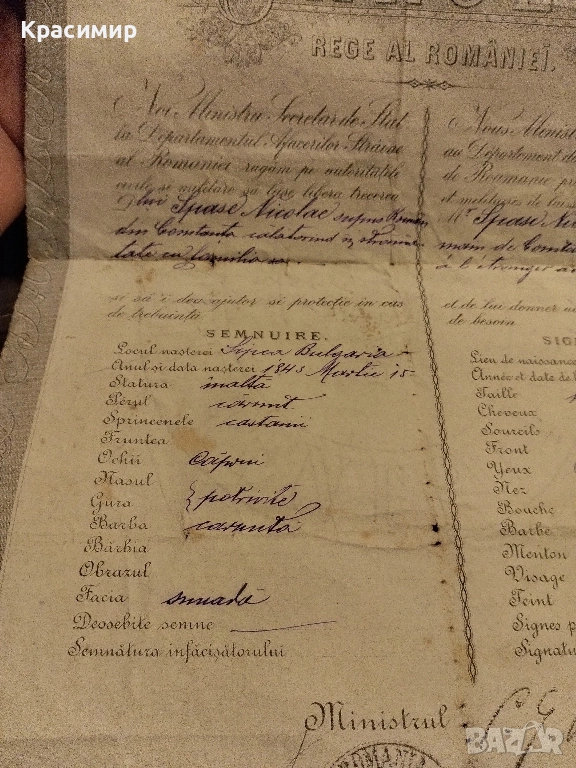 Красимир
REGE AL ROMÂNIEI.
Noi Ministru Secretar de Stat
la Departamentul Afacerilor Străine
al Romaniei rugăm pe autoritățile
civile și militare să lase libera trecerea
D-lui Spase Nicolae supus Român
din Constanta calatorind in streina-
tate cu familia sa.
și să i dea ajutor și protecție in cas
de trebuință.
SEMNUIRE.
Locul nașterei Sipca Bulgaria
Anul și data nașterei 1843 Martie 15
Statura inaltă
Pĕrul cărunt
Sprincenele castanii
Fruntea
Ochii Căprui
Nasul
Gura potrivite
Barba carunta
Bărbia
Obrazul
Facia smeadă
Deosebite semne
Semnătura înfăcișătorului
Ministrul
ROMANIA
Nous Minist
au Département d
de Roumanie pr
et militaires de la
Mr Spase Ni
main de Const
à l'étranger a
et de lui donner
de besoin
SIG
Lieu de naissanc
Année et date de
Taille
Cheveux
Sourcils
Front
Yeux
Nez
Bouche
Barbe
Menton
Visage
Teint
Signes p
Signatu
BAZAR